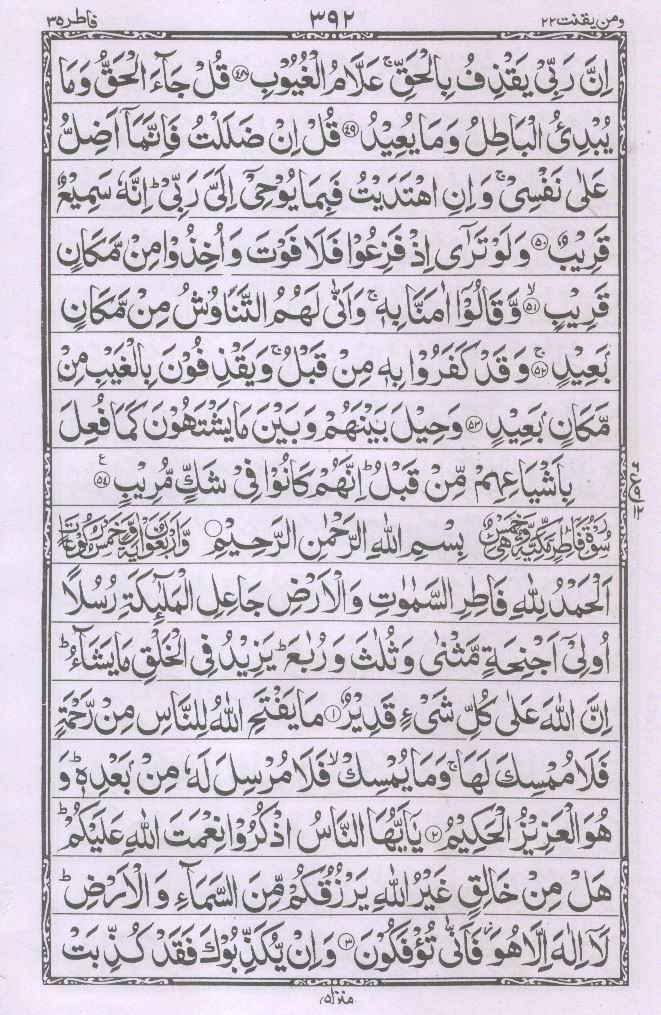 ومن يقنت ٢٢ ٣٩٢ فاطر ٣٥
اِنَّ رَبِّیْ یَقْذِفُ بِالْحَقِّ ۚ عَلَّامُ الْغُیُوْبِ ﴿۴۸﴾ قُلْ جَآءَ الْحَقُّ وَمَا
یُبْدِئُ الْبَاطِلُ وَمَا یُعِیْدُ ﴿۴۹﴾ قُلْ اِنْ ضَلَلْتُ فَاِنَّمَاۤ اَضِلُّ
عَلٰی نَفْسِیْ ۚ وَاِنِ اهْتَدَیْتُ فَبِمَا یُوْحِیْۤ اِلَیَّ رَبِّیْ ؕ اِنَّهٗ سَمِیْعٌ
قَرِیْبٌ ﴿۵۰﴾ وَلَوْ تَرٰۤی اِذْ فَزِعُوْا فَلَا فَوْتَ وَاُخِذُوْا مِنْ مَّكَانٍ
قَرِیْبٍ ﴿۵۱﴾ۙ وَّقَالُوْۤا اٰمَنَّا بِهٖ ۚ وَاَنّٰی لَهُمُ التَّنَاوُشُ مِنْ مَّكَانٍۭ
بَعِیْدٍ ﴿۵۲﴾ۚ وَّقَدْ كَفَرُوْا بِهٖ مِنْ قَبْلُ ۚ وَیَقْذِفُوْنَ بِالْغَیْبِ مِنْ
مَّكَانٍۭ بَعِیْدٍ ﴿۵۳﴾ وَحِیْلَ بَیْنَهُمْ وَبَیْنَ مَا یَشْتَهُوْنَ كَمَا فُعِلَ
بِاَشْیَاعِهِمْ مِّنْ قَبْلُ ؕ اِنَّهُمْ كَانُوْا فِیْ شَكٍّ مُّرِیْبٍ ﴿۵۴﴾ ع
سُوْرَةُ فَاطِرٍ مَّكِّیَّةٌ بِسْمِ اللهِ الرَّحْمٰنِ الرَّحِیْمِ
اَلْحَمْدُ لِلّٰهِ فَاطِرِ السَّمٰوٰتِ وَالْاَرْضِ جَاعِلِ الْمَلٰٓئِكَةِ رُسُلًا
اُولِیْۤ اَجْنِحَةٍ مَّثْنٰی وَثُلٰثَ وَرُبٰعَ ؕ یَزِیْدُ فِی الْخَلْقِ مَا یَشَآءُ ؕ
اِنَّ اللهَ عَلٰی كُلِّ شَیْءٍ قَدِیْرٌ ﴿۱﴾ مَا یَفْتَحِ اللهُ لِلنَّاسِ مِنْ رَّحْمَةٍ
فَلَا مُمْسِكَ لَهَا ۚ وَمَا یُمْسِكْ ۙ فَلَا مُرْسِلَ لَهٗ مِنْۢ بَعْدِهٖ ؕ وَ
هُوَ الْعَزِیْزُ الْحَكِیْمُ ﴿۲﴾ یٰۤاَیُّهَا النَّاسُ اذْكُرُوْا نِعْمَتَ اللهِ عَلَیْكُمْ ؕ
هَلْ مِنْ خَالِقٍ غَیْرُ اللهِ یَرْزُقُكُمْ مِّنَ السَّمَآءِ وَالْاَرْضِ ؕ
لَاۤ اِلٰهَ اِلَّا هُوَ ؗ فَاَنّٰی تُؤْفَكُوْنَ ﴿۳﴾ وَاِنْ یُّكَذِّبُوْكَ فَقَدْ كُذِّبَتْ
منزل ٥